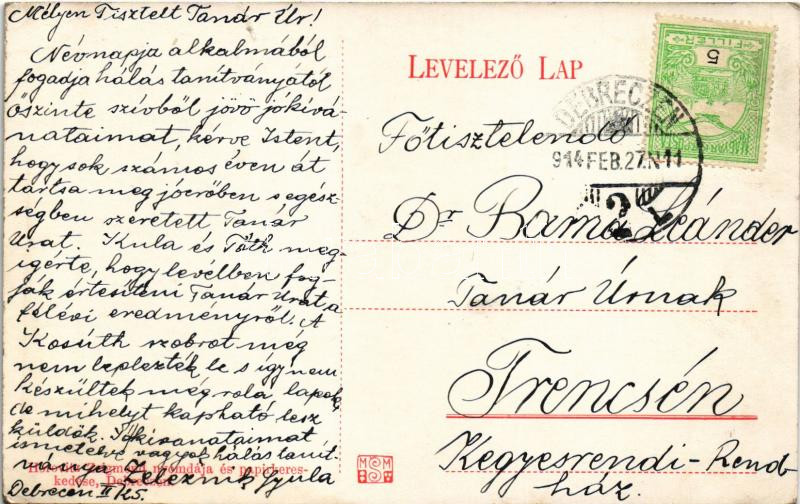 Mélyen Tisztelt Tanár Úr!
Névnapja alkalmából
fogadja hálás tanítványától
őszinte szívből jövő jókívá-
nataimat, kérve Istent,
hogy sok számos éven át
tartsa meg jóerőben s egész-
ségben szeretett Tanár
Urat. Kula és Tóth meg-
igérte, hogy levélben fog-
ják értesíteni Tanár Urat a
félévi eredményről. A
Kosúth szobrot még
nem leplezték le s így nem
készültek még róla lapok,
de mihelyt kapható lesz
küldök. Jókivánataimat
ismételve vagyok hálás tanít-
ványa Zeleznik Gyula
Debrecen II/25.
nyomdája és papirkeres-
kedése, Debrecen.
LEVELEZŐ LAP
5
FILLÉR
DEBRECZEN
914 FEB. 27. N 11
2
Főtisztelendő
Dr Barna Leánder
Tanár Úrnak
Trencsén
Kegyesrendi-Rend-
ház.